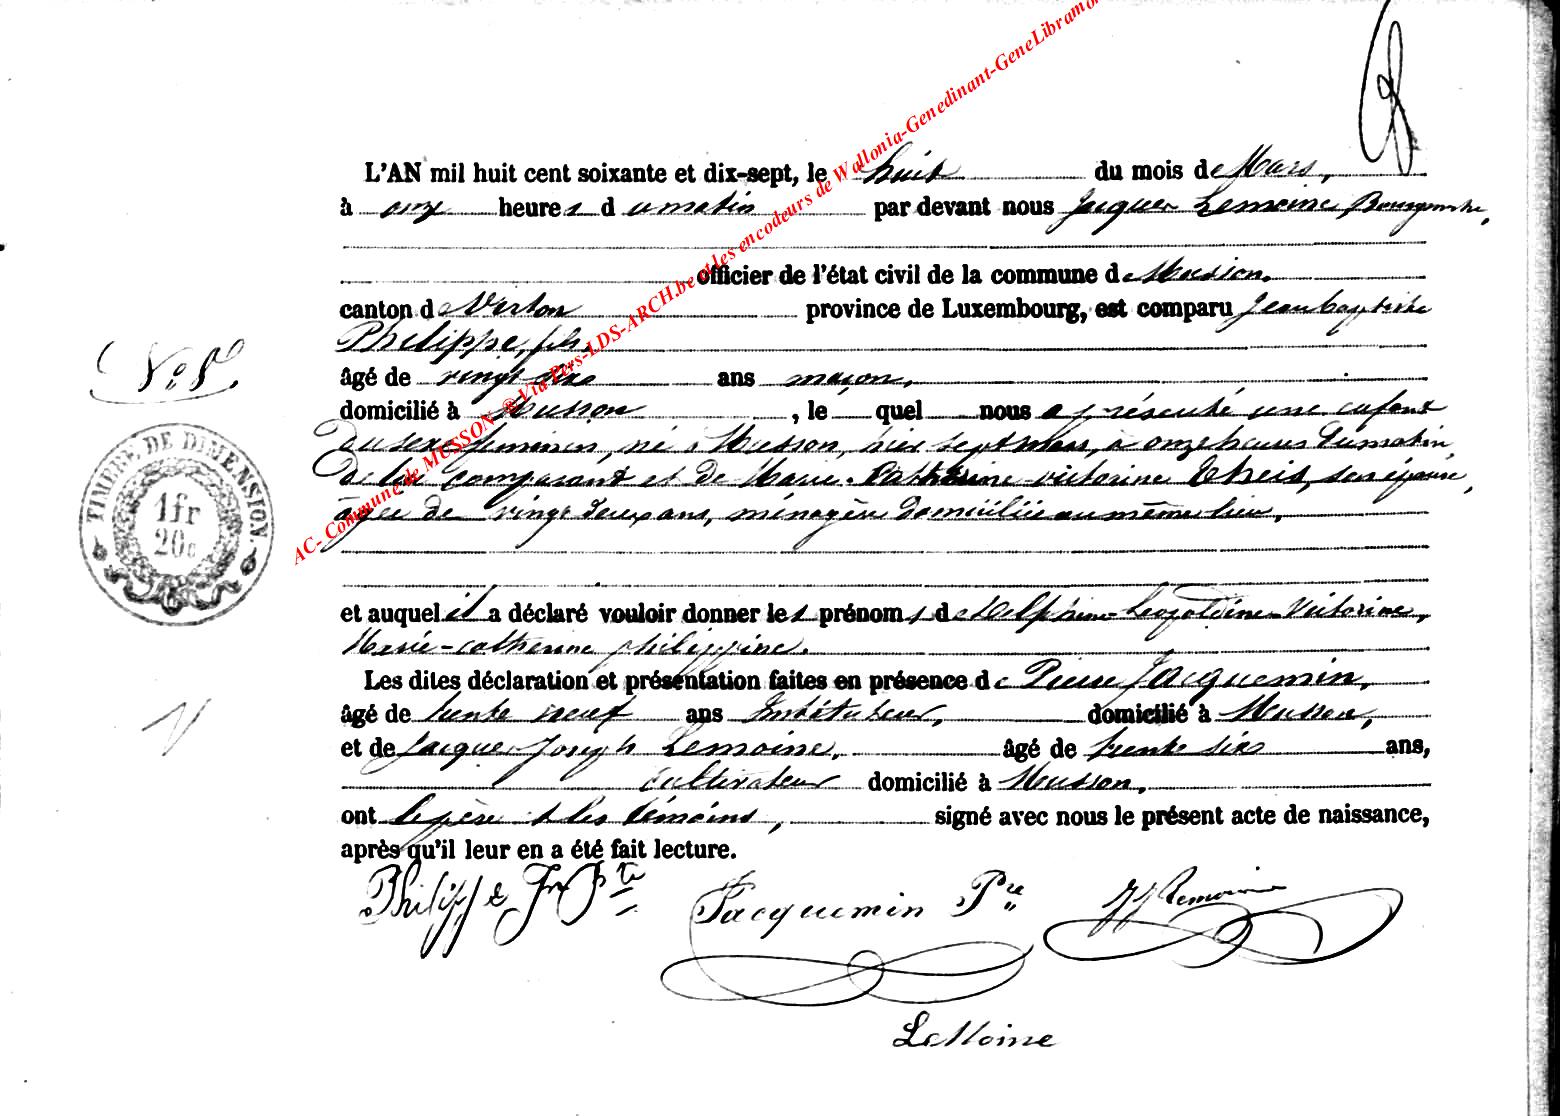 AC- Commune de MUSSON ® Via Pers-LDS-ARCH.be et les encodeurs de Wallonia-Genedinant-GeneLibramon
L'AN mil huit cent soixante et dix-sept, le huit du mois de Mars,
à onze heures du matin par devant nous Jacques Lemoine Bourgmestre,
officier de l'état civil de la commune de Musson,
canton de Virton province de Luxembourg, est comparu Jean baptiste
Philippe, fils,
N° 8.
âgé de vingt six ans maçon,
domicilié à Musson, le quel nous a présenté une enfant
du sexe feminin, né à Musson, hier sept mars, à onze heures du matin,
de lui comparant et de Marie-Catherine victorine Theis, son épouse,
âgée de vingt deux ans, ménagère domiciliée au même lieu,
TIMBRE DE DIMENSION.
1 fr
20c
et auquel il a déclaré vouloir donner les prénoms de Delphine-Leopoldine-Victorine,
Marie-catherine philippine.
Les dites déclaration et présentation faites en présence de Pierre Jacquemin,
âgé de trente neuf ans Instituteur, domicilié à Musson,
et de Jacques Joseph Lemoine, âgé de trente six ans,
cultivateur domicilié à Musson,
ont le père & les témoins, signé avec nous le présent acte de naissance,
après qu'il leur en a été fait lecture.
Philippe Jn Bte
Jacquemin Pre
JJ Lemoine
LeMoine